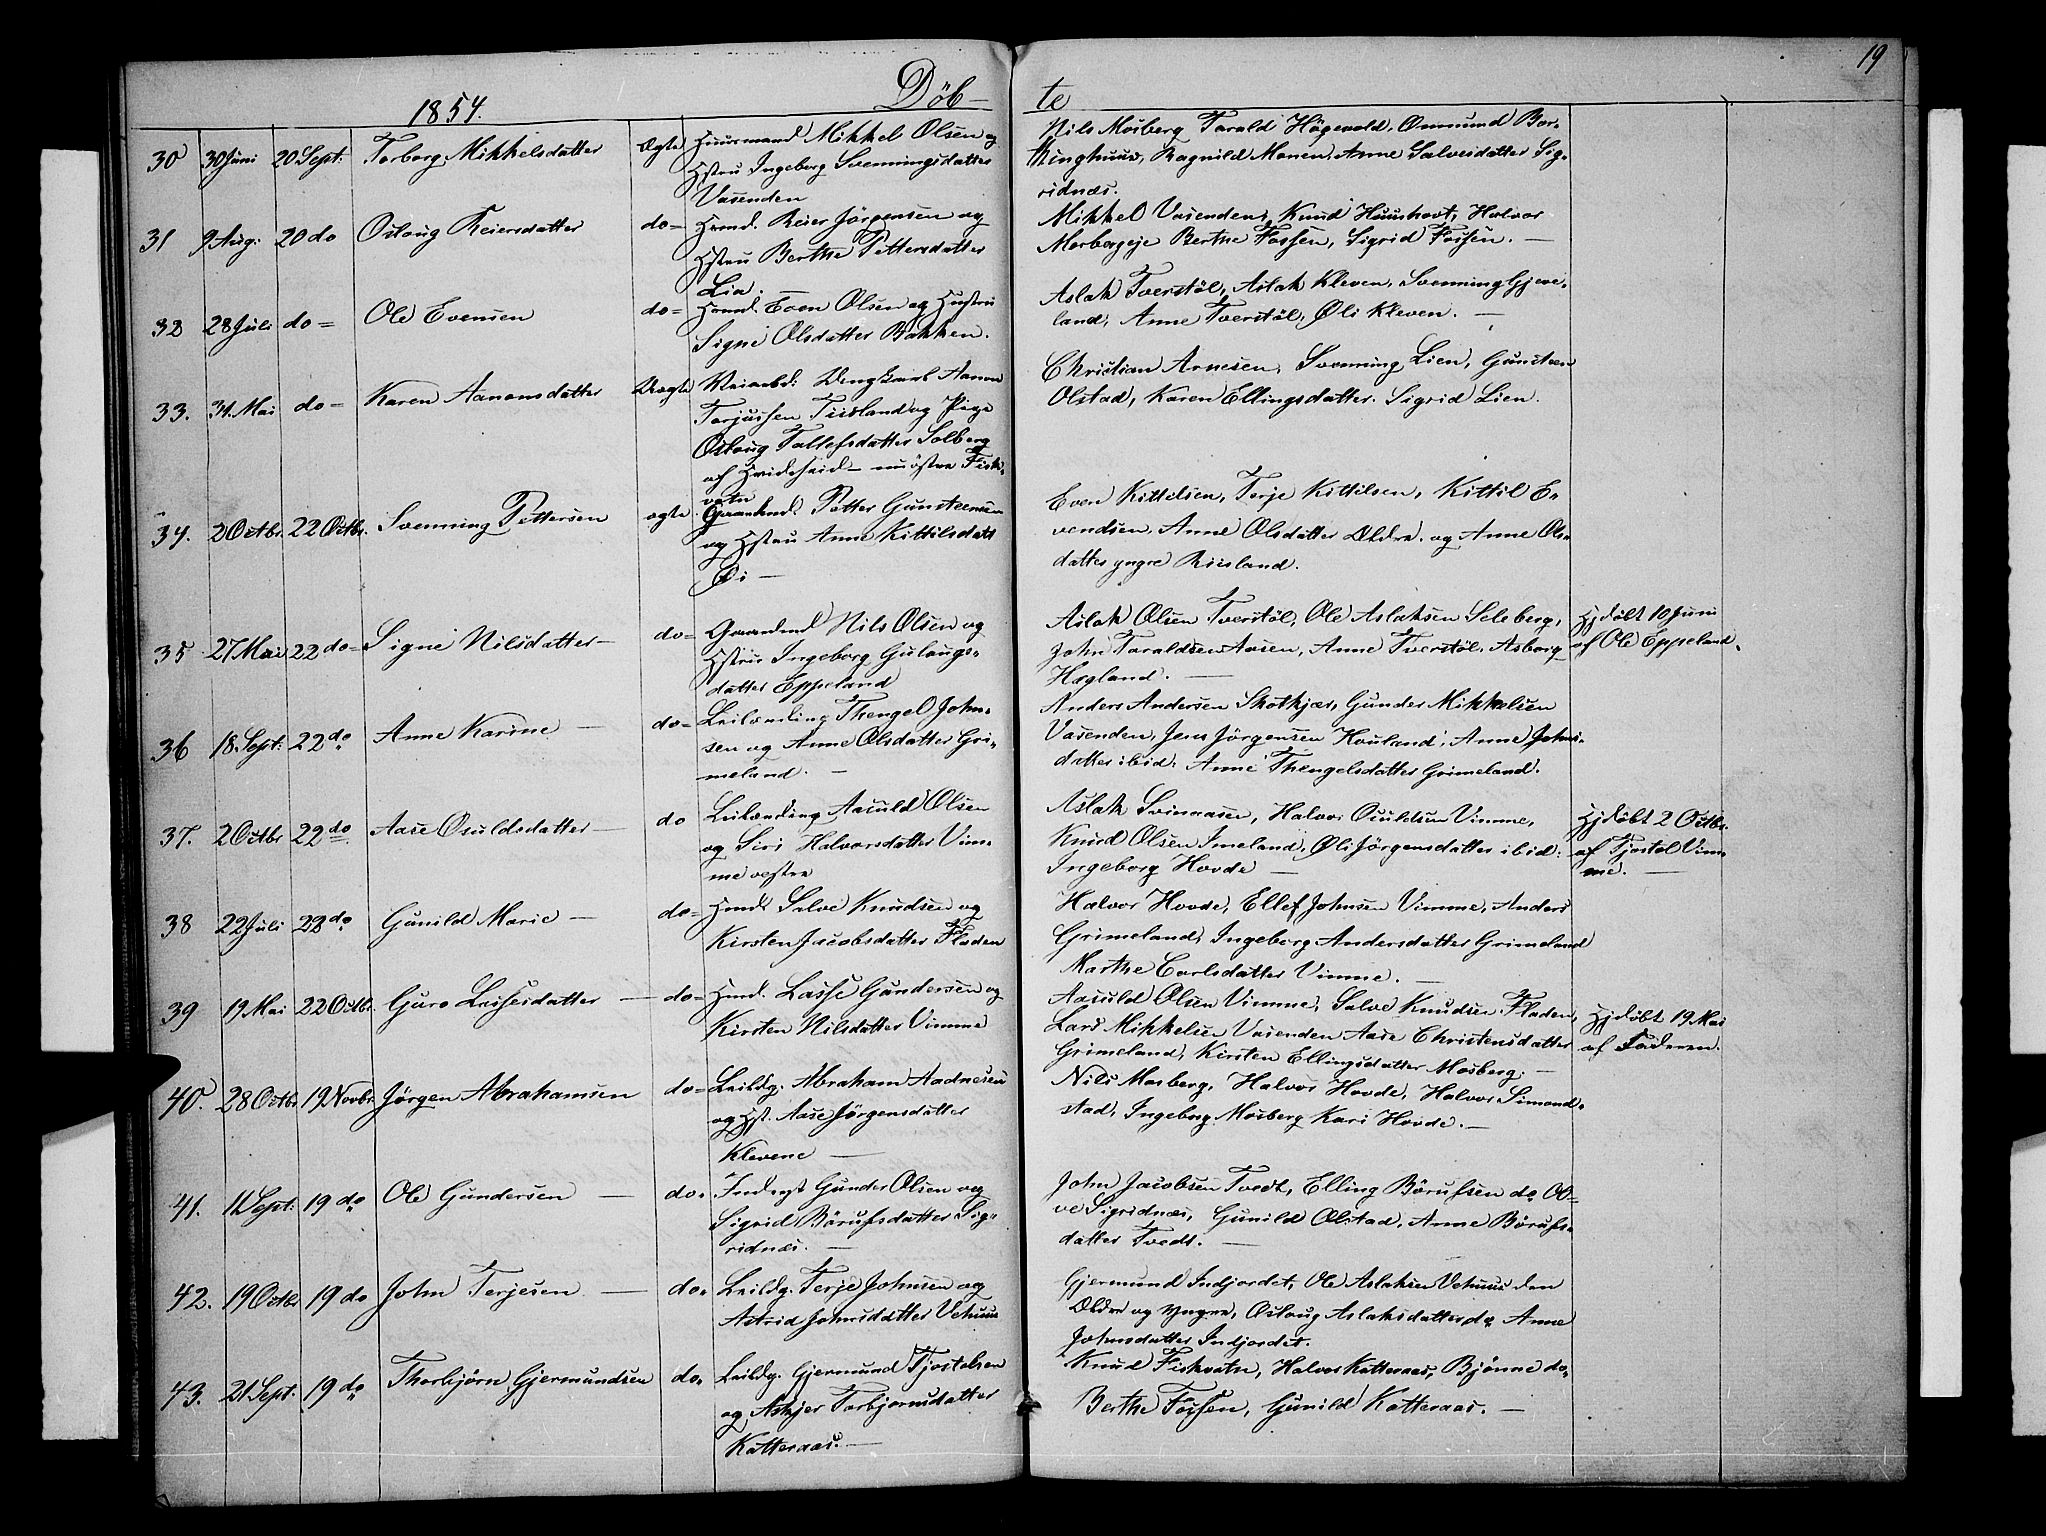 19
1854. Döb- te
30 30 Juni 20 Sept: Torborg Mikkelsdatter Ægte Huusmand Mikkel Olsen og
Hstru Ingeborg Svenningsdatter
Vasenden
Nils Mosberg Tarald Högevold, Omund
Ringhuus, Ragnild Monen, Anne Salvesdatter Sig-
ridnæs.
31 9 Aug: 20 do Oslaug Reiersdatter do= Hmd. Reier Jörgensen og
Hstru Berthe Pettersdatter
Lia.
Mikkel Vasenden, Knud Huushovt, Halvor
Mosbergeje Berthe Fossen, Sigrid Fossen. —
32 28 Juli do= Ole Evensen do= Hmd. Even Olsen og Hustru
Signe Olsdatter Bakken.
Aslak Tverstöl, Aslak Kleven, Svenning Gjeve-
land, Anne Tverstöl, Öli Kleven. —
33. 31. Mai do= Karen Aanonsdatter Uægte Aanon
Torjussen Tiisland og Pige
Oslaug Tallefsdatter Solberg
af Hvideseid — nu östre Fisk-
vatn
Christian Arnesen, Svenning Lien, Gunsteen
Olstad, Karen Ellingsdatter. Sigrid Lien.
34. 2 Octbr. 22 Octbr. Svenning Pettersen ægte. Gaardmd. Petter Gunsteensen
og Hstru Anne Kittilsdatt
Öi —
Even Kittilsen, Terje Kittilsen, Kittil E-
vendsen, Anne Olsdatter Ældre. og Anne Ols-
datter yngre Riisland.
35 27 Mai 22 do= Signe Nilsdatter — do= Gaardmd Nils Olsen og
Hstru Ingeborg Gulaugs-
datter Eppeland
Aslak Olsen Tverstöl, Ole Aslaksen Seleberg,
John Taraldsen Aasen, Anne Tverstöl, Asborg
Hægland. —
Hjdöbt 10 Juni
af Ole Eppeland.
36 18. Sept: 22 do Anne Karine — do= Leilænding Thengel John-
sen og Anne Olsdatter Gri-
meland. —
Anders Andersen Skotkjær, Gunder Mikkelsen
Vasenden, Jens Jörgensen Houland, Anne Johns-
datter ibid: Anne Thengelsdatter Grimeland.
37. 2 Octbr 22 do Aase Osuldsdatter — do Leilænding Aasuld Olsen
og Siri Halvorsdatter Vim-
me vestre
Aslak Svinaasen, Halvor Osuldsen Vimme,
Knud Olsen Imeland, Öli Jörgensdatter ibid:
Ingeborg Hovde —
Hjdöbt 2 Octbr.
af Tjostol Vim-
me. —
38 22 Juli 22 do Gunild Marie — do= Hmd. Salve Knudsen og
Kirsten Jacobsdatter Fladen
Halvor Hovde, Ellef Johnsen Vimme, Anders
Grimeland, Ingeborg Andersdatter Grimeland
Marthe Carlsdatter Vimme. —
39 19 Mai 22 Octbr. Guro Lassesdatter — do= Hmd. Lasse Gundersen og
Kirsten Nilsdatter Vimme
Aasuld Olsen Vimme, Salve Knudsen Fladen,
Lars Mikkelsen Vasenden Aase Christensdatter
Grimeland, Kirsten Ellingsdatter Mosberg. —
Hjdöbt 19 Mai
af Faderen.
40. 28 Octbr 19 Novbr. Jörgen Abrahamsen do= Leildg. Abraham Aadnesen
og Hst. Aase Jörgensdatter
Klevene —
Nils Mosberg, Halvor Hovde, Halvor Simond-
stad, Ingeborg Mosberg Kari Hovde. —
41. 11 Sept: 19 do Ole Gundersen — do= Inderst Gunder Olsen og
Sigrid Börufsdatter Sig-
ridnæs. —
John Jacobsen Tvedt, Elling Börufsen do Ol-
ve Sigridnæs, Gunild Ælstad, Anne Börufs-
datter Tvedt. —
42. 19 Octbr 19 do John Terjesen — do= Leildg. Terje Johnsen og
Astrid Johnsdatter Vehuus
Gjermund Indjordet, Ole Aslaksen Vehuus den
Ældre og Yngre, Oslaug Aslaksdatter do Anne
Johnsdatter Indjordet.
43. 21 Sept: 19 do Thorbjörn Gjermundsen do= Leildg. Gjermund Tjostolsen
og Askjer Torbjornsdatter
Katteraas. —
Knud Fiskvatn, Halvor Katteraas, Bjönne do-
Berthe Fossen, Gunild Katteraas. —